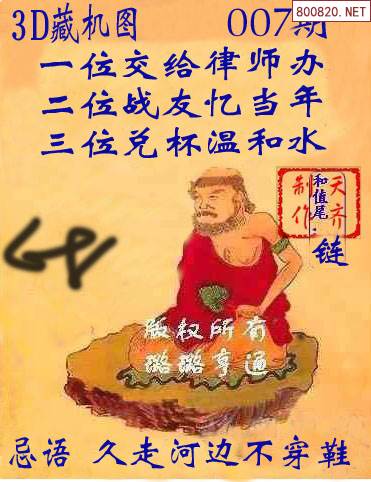 800820.NET
3D藏机图 007期
一位交给律师办
二位战友忆当年
三位兑杯温和水
天齐
制作
和值尾:链
版权所有
璐璐亨通
忌语 久走河边不穿鞋